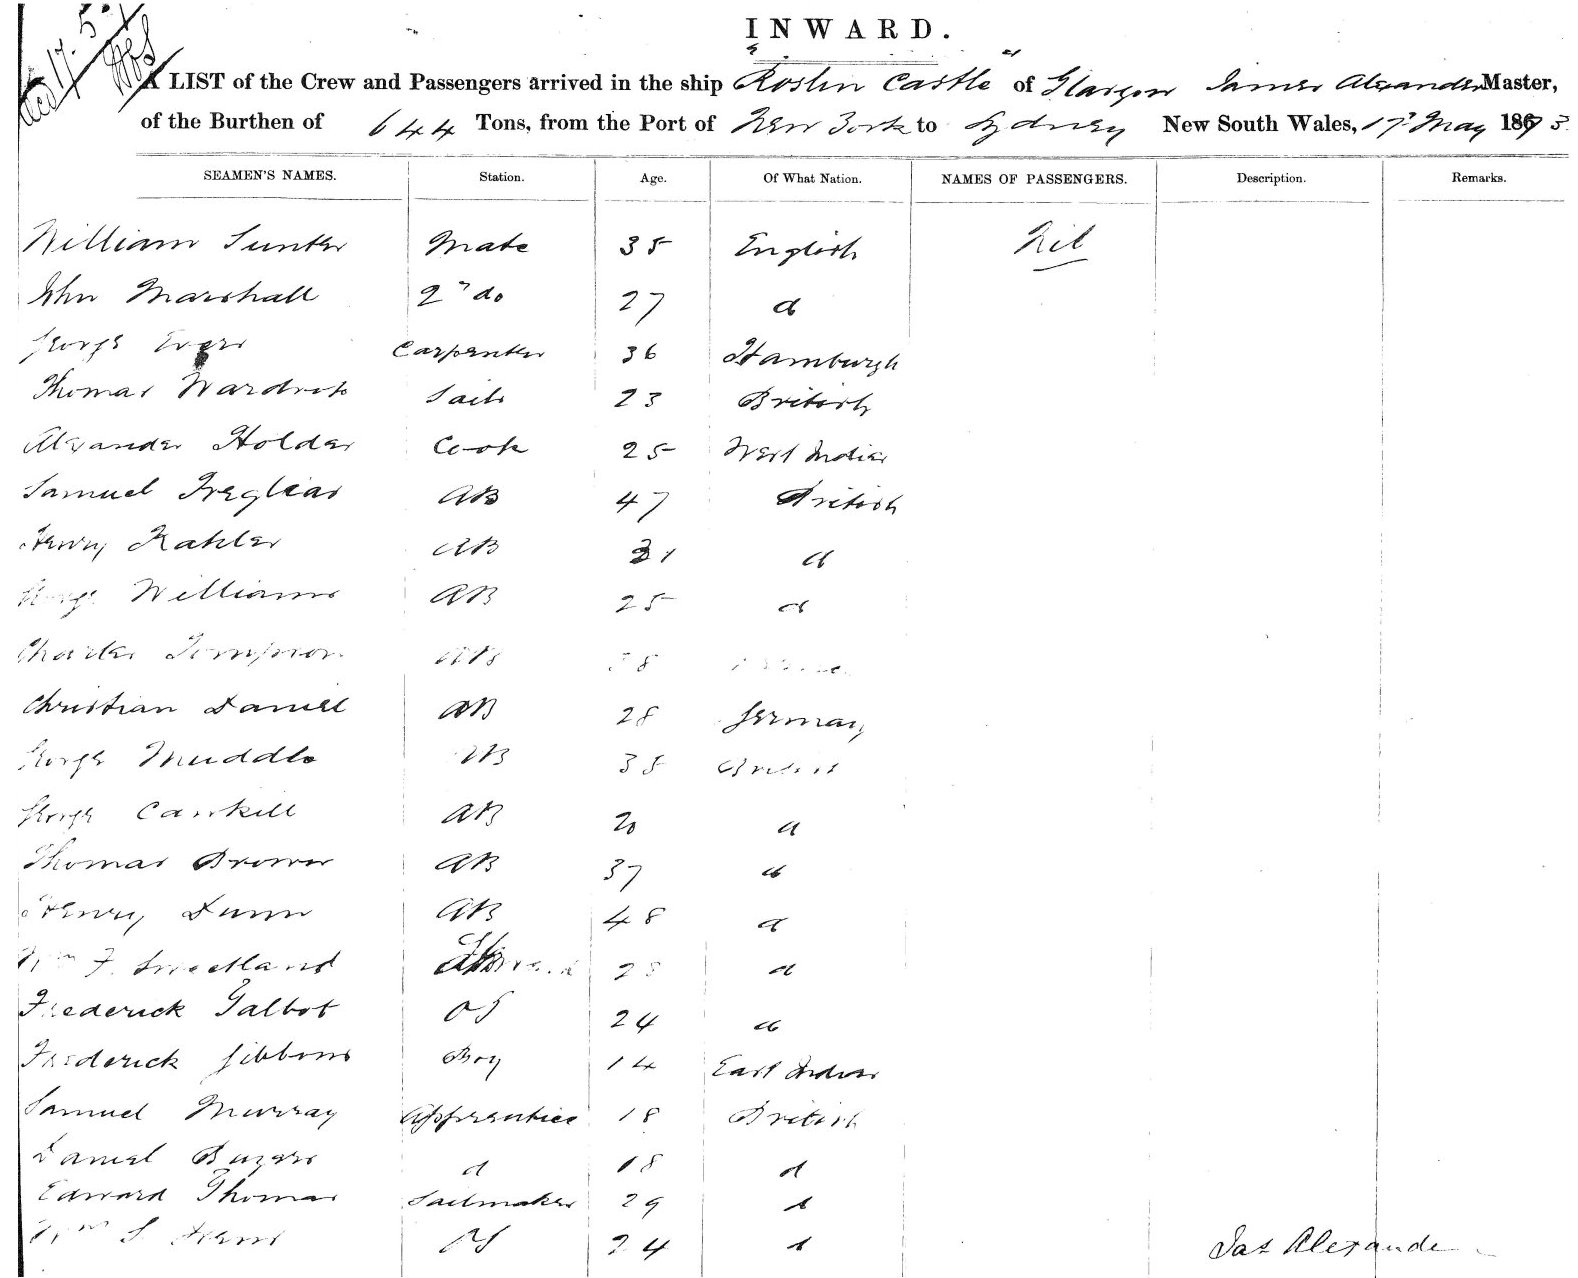 INWARD.
A LIST of the Crew and Passengers arrived in the ship "Roslin Castle" of Glasgow James Alexander Master,
of the Burthen of 644 Tons, from the Port of New York to Sydney New South Wales, 17 May 1873
SEAMEN'S NAMES. Station. Age. Of What Nation. NAMES OF PASSENGERS. Description. Remarks.
William Sunter Mate 35 English Nil
John Marshall 2nd do 27 d
George Evers Carpenter 36 Hamburgh
Thomas Wardrob Sails 23 British
Alexander Holder Cook 25 West Indies
Samuel Tregliar AB 47 British
Henry Kahler AB 31 d
George Williams AB 25 d
Charles AB
Christian Daniel AB 28 Germany
George Muddle AB 35 British
George Cawkill AB 20 d
Thomas Brown AB 37 d
Henry Dunn AB 48 d
Wm F. Sweetland 28 d
Frederick Talbot OS 24 d
Frederick Gibbons Boy 14 East Indies
Samuel Murray Apprentice 18 British
Daniel 18 d
Edward Thomas Sailmaker 29 d
Wm S OS 24 d
Jas Alexander